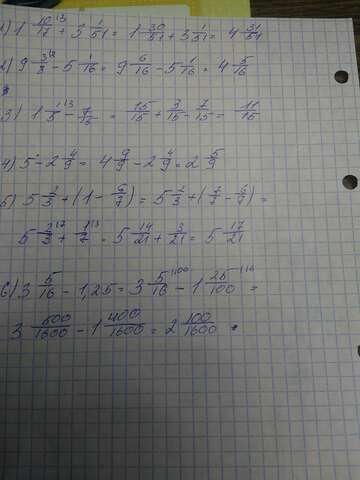 1) 1 10/17 ^(3 + 3 1/51 = 1 30/51 + 3 1/51 = 4 31/51
2) 9 3/8 ^(2 - 5 1/16 = 9 6/16 - 5 1/16 = 4 5/16
3) 1 1/5 ^(3 - 7/15 = 15/15 + 3/15 - 7/15 = 11/15
4) 5 - 2 4/9 = 4 9/9 - 2 4/9 = 2 5/9
5) 5 2/3 + (1 - 6/7) = 5 2/3 + (7/7 - 6/7) =
5 2/3 ^(7 + 1/7 ^(3 = 5 14/21 + 3/21 = 5 17/21
6) 3 5/16 - 1,25 = 3 5/16 ^(100 - 1 25/100 ^(16 =
3 500/1600 - 1 400/1600 = 2 100/1600 .